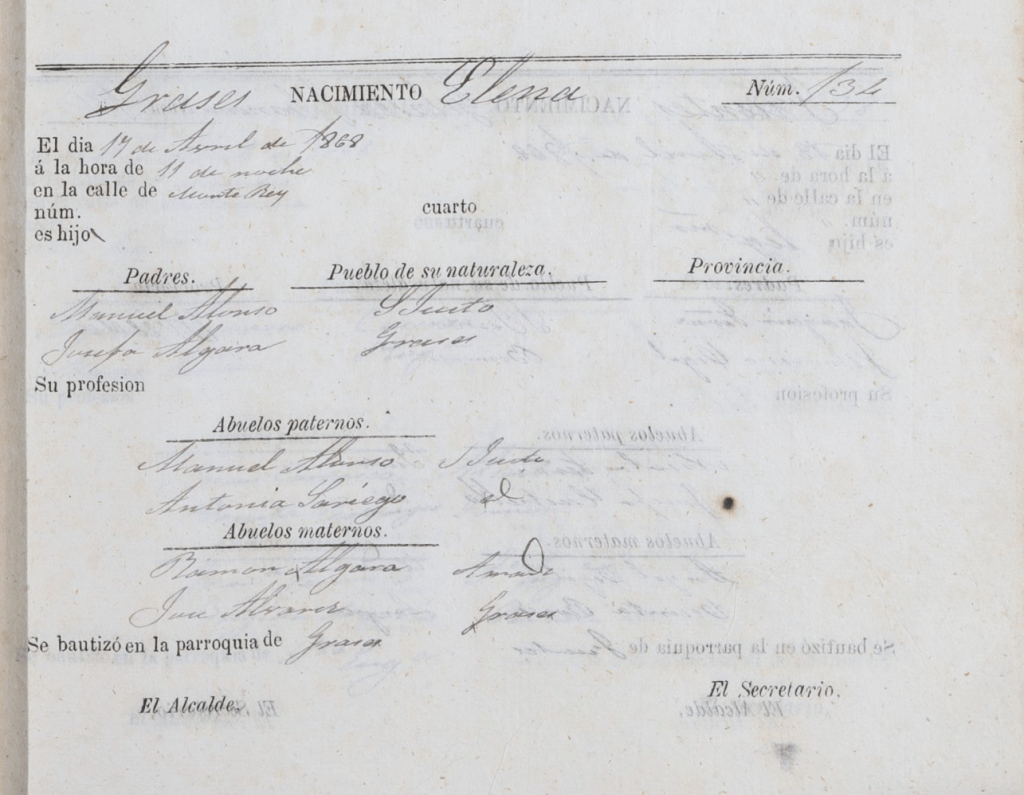 Grases NACIMIENTO Elena Núm. 134
El dia 17 de Avril de 1868
á la hora de 11 de noche
en la calle de Monte Rey
núm. cuarto
es hijo
Padres. Pueblo de su naturaleza. Provincia.
Manuel Alonso S Justo
Josefa Algara Grases
Su profesion
Abuelos paternos.
Manuel Alonso S Justo
Antonia Sariego id
Abuelos maternos.
Ramon Algara
Alvarez Grases
Se bautizó en la parroquia de Grases
El Alcalde. El Secretario.